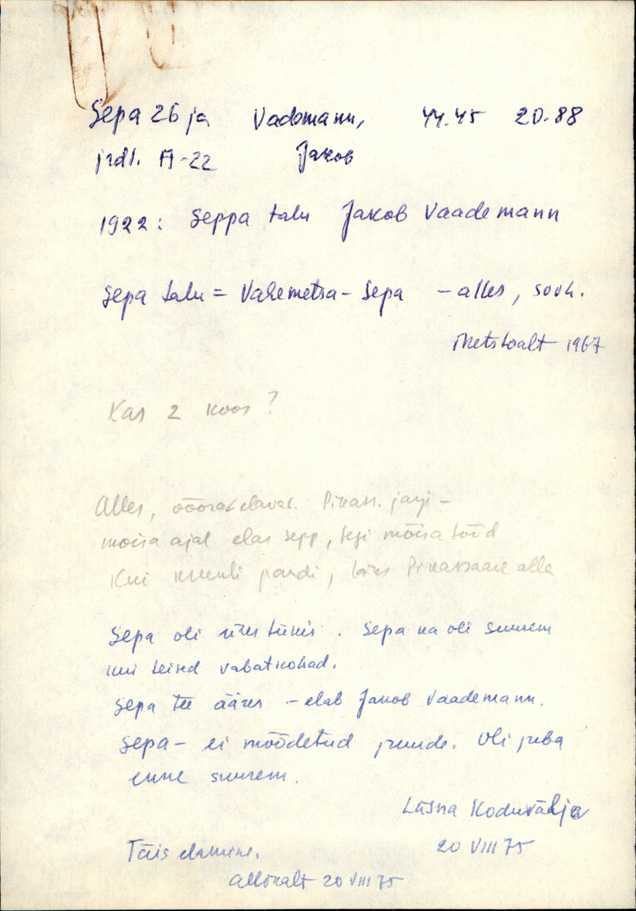 Sepa 26 ja Vadomann, 44.45 20.88
jrdl. A-22 Jakob
1922: Seppa talu Jakob Vaademann
Sepa talu = Varemetsa-Sepa - alles, sovh.
Metstoalt 1967
Kas 2 koos?
Alles, võõrad elavad. Pikass. järgi -
mõisa ajal elas sepp, tegi mõisa tööd
Kui krunti pandi, läks Pikassaare alla
Sepa oli ühes tükis. Sepa ka oli suurem
kui teised vabatkohad.
Sepa tee ääres - elab Jakob Vaademann.
Sepa - ei mõõdetud juurde. Oli juba
enne suurem.
Lasna Koduvälja
20 VIII 75
Täis elamine.
allõnalt 20 VIII 75